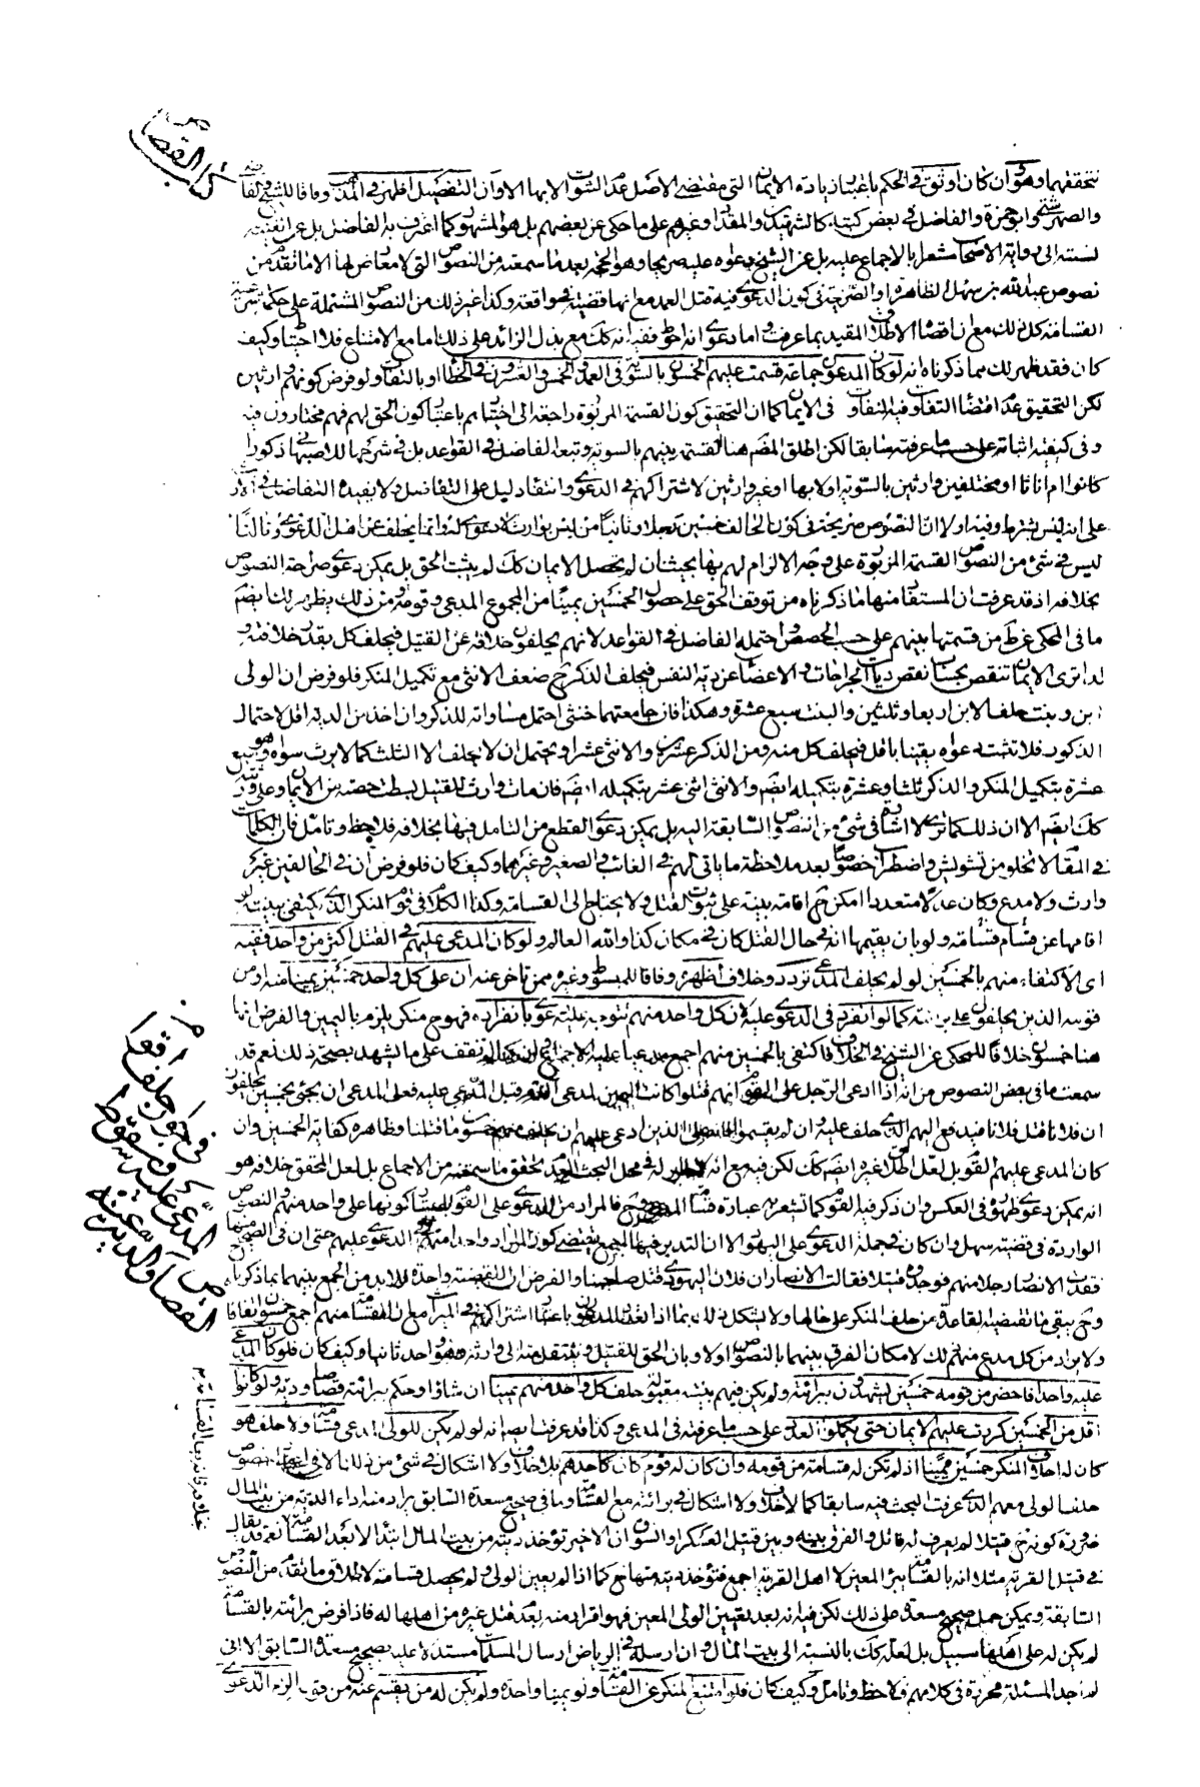 كتاب القصاص
تتحققهما وهو وان كان اوثق في الحكم باعتبار زيادة الايمان التي مقتضى الاصل عدم الثبوت الا بها الا ان التفصيل اظهر في المذهب وفاقا للشيخ والقاضي
والصهرشتي وابو حمزة والفاضل في بعض كتبه كالشهيدين والمقداد وغيرهم على ما حكى عن بعضهم بل هو المشهور كما اعترف به الفاضل بل عن الغنية
نسبته الى رواية الاصحاب مشعرا بالاجماع عليه بل عن الشيخ دعواه عليه صريحا وهو الحجة بعد ما سمعته من النصوص التي لا معارض لها الا ما تقدم من
نصوص عبد الله بن سهل الظاهرة او الصريحة في كون الدعوى فيه قتل العمد مع انها قضية في واقعة وكذا غير ذلك من النصوص المشتملة على حكمة شرعية
القسامة كل ذلك مع ان اقصاها الاطلاق المقيد بما عرفت واما دعوى انه احوط ففيه انه كك مع بذل الزائد على ذلك اما مع الامتناع فلا احتياط وكيف
كان فقد ظهر لك مما ذكرناه انه لو كان المدعون جماعة قسمت عليهم الخمسون بالسوية في العمد والخمس والعشرون في الخطا او بالتفاوت ولو فرض كونهم وارثين
لكن التحقيق عدم اقتضاء التفاوت فيه التفاوت في الايمان كما ان التحقيق كون القسمة المزبورة راجعة الى اختيارهم باعتبار كون الحق لهم فهم مختارون فيه
وفي كيفية اثباته على حسب ما عرفته سابقا لكن اطلق المصنف هنا القسمة بينهم بالسوية وتبعه الفاضل في القواعد بل في شرحها للاصبهاني ذكورا
كانوا ام اناثا او مختلفين وارثين بالسوية اولا بها او غير وارثين لاشتراكهم في الدعوى وانتفاء دليل على التفاضل ولا يفيده التفاضل في الارث
على انه ليس بشرط وفيه اولا ان النصوص صريحة في كون الحالف خمسين رجلا وثانيا من ليس بوارث لا دعوى له وانما يحلف عن اهل الدعوى وثالثا
ليس في شئ من النصوص القسمة المزبورة على وجه الالزام لهم بها بحيث ان لم يحصل الايمان كك لم يثبت الحق بل يمكن دعوى صراحة النصوص
بخلافه اذ قد عرفت ان المستفاد منها ما ذكرناه من توقف الحق على حصول الخمسين يمينا من المجموع المدعى وقومه ومن ذلك يظهر لك ايضا
ما في المحكى عن ط من قسمتها بينهم على حسب الحصص واحتمله الفاضل في القواعد لانهم يحلفون خلافة عن القتيل فيحلف كل بقدر خلافته و
لذا ترى الايمان تنقص بحساب نقص ديات الجراحات والاعضاء عن دية النفس فيحلف الذكر ح ضعف الانثى مع تكميل المنكر فلو فرض ان الولى
ابن وبنت حلف الابن اربعا وثلثين والبنت سبع عشرة وهكذا فان جامعتهما خنثى احتمل مساواته للذكر وان اخذ من الدية اقل لاحتمال
الذكورة فلا تثبت دعواه يقينا باقل فيحلف كل منه ومن الذكر عشرين والانثى عشرا ويحتمل ان لا يحلف الا الثلث كما لا يرث سواه وهو سبع
عشرة بتكميل المنكر والذكر ثلثا وعشرين بتكميله ايضا والانثى اثنى عشر بتكميله ايضا فان مات وارث للقتيل بسطت حصته من الايمان على ورثته
كك ايضا الا ان ذلك كما ترى لا اشارة في شئ من النصوص السابقة اليه بل يمكن دعوى القطع من التامل فيها بخلافه فلاحظ وتامل فان الكلمات
في المقام لا تخلو من تشويش واضطراب خصوصا بعد ملاحظة ما ياتي لهم في الغائب والصغير وغيرهما وكيف كان فلو فرض ان في الحالفين غير
وارث ولا مدع وكان عدلا متعددا امكن ح اقامته بينة على ثبوت القتل ولا يحتاج الى القسامة وكذا الكلام في قوم المنكر الذي يكتفى ببينته
اقامها عن قسامة ولو بان يقيمها انه في حال القتل كان في مكان كذا والله العالم ولو كان المدعى عليهم في القتل اكثر من واحد ففيه
اي الاكتفاء منهم بالخمسين لو لم يحلف المدعى تردد وخلاف اظهره وفاقا للمبسوط وغيره ممن تاخر عنه ان على كل واحد خمسين يمينا منه او من
قومه الذين يحلفون على براءته كما لو انفرد في الدعوى عليه لان كل واحد منهم تتوجه عليه دعوى بانفراده فهو ح منكر يلزمه باليمين والفرض انها
هنا خمسون خلافا للمحكى عن الشيخ في الخلاف فاكتفى بالخمسين منهم اجمع مدعيا عليه الاجماع نقف على ما يشهد بصحة ذلك نعم قد
سمعت ما في بعض النصوص من انه اذا ادعى الرجل على القوم انهم قتلوا كانت اليمين لمدعى الدم قبل المدعى عليه فعلى المدعى ان يجئ بخمسين يحلفون
ان فلانا قتل فلانا فيدفع اليهم الذي حلف عليه وان لم يقسموا الذين ادعى عليهم ان يحلف منهم خمسون ما قتلنا وظاهره كفاية الخمسين وان
كان المدعى عليهم القوم بل لعل اطلاق غيره ايضا كك لكن فيه مع انه لا جابر له في محل البحث بعد تحقق ما سمعته من الاجماع بل لعل المحقق خلافه هو
انه يمكن دعوى ظهوره في العكس وان ذكر فيه القوم كما تشعر به عبارة قسامة ح فالمراد من الدعوى على القوم كونها على واحد منهم والنصوص
الواردة في قضية سهل وان كان في جملة الدعوى على اليهود الا ان التدبر فيها اجمع يقتضى كون المراد واحدا منهم الدعوى عليهم حتى ان في الصحيح منها
فقدت الانصار رجلا منهم فوجدوه قتيلا فقالت الانصار ان فلان اليهودي قتل صاحبنا والفرض ان القضية واحدة فلا بد من الجمع بينهما بما ذكرناه
وح يبقى ما تقتضيه القاعدة من حلف المنكر على حالها ولا يشكل ذلك بما اذا تعدد المدعون باعتبار اشتراكهم في الميراث مع ان القسامة منهم اجمع خمسون اتفاقا
ولا يراد من كل مدع منهم ذلك لامكان الفرق بينهما بالنصوص اولا وبان الحق للقتيل وينتقل منه الى وارثه وهو واحد ثانيا وكيف كان فلو كان المدعى
عليه واحدا فاحضر من قومه خمسين يشهدون ببرائته ولم يكن فيهم بينة مقبولة حلف كل واحد منهم يمينا ان شاؤا وحكم ببرائته قصاصا ودية ولو كانوا
اقل من الخمسين كررت عليهم الايمان حتى يكملوا العدد على حسب ما عرفته في المدعى وكذا قد عرفت ايضا انه لو لم يكن للولى المدعى قسامة ولا حلف هو
كان له احلاف المنكر خمسين يمينا اذ لم تكن له قسامة من قومه وان كان له قوم كان كاحدهم بلا خلاف ولا اشكال في شئ من ذلك
حلف الولى معهم الذي عرفت البحث فيه سابقا كما لا خلاف ولا اشكال في برائته مع القسامة وما في صحيح مسعدة السابق يراد منه اداء الدية من بيت المال
ضرورة كونه ح قتيلا لم يعرف له قاتل والفرق بينه وبين قتيل العسكر او السوق ان الاخير تؤخذ ديته من بيت المال ابتداء لا بعد القسامة نعم قد يقال
في قتيل القرية مثلا انه بالقسامة يبرا المعين لا اهل القرية اجمع فتؤخذ ديته منها ح كما اذا لم يعين الولى ولم يحصل قسامة لاطلاق ما تقدم من النصوص
السابقة ويمكن حمل صحيح مسعدة على ذلك لكن فيه انه بعد تعيين الولى المعين فهو اقرار منه بعدم قتل غيره من اهلها له فاذا فرض برائته بالقسامة
لم يكن له على اهلها سبيل بل لعله كك بالنسبة الى بيت المال وان ارسله في الرياض ارسال المسلمات مستدلا عليه بصحيح مسعدة السابق الا انى
لم اجد المسئلة محررة في كلامهم فلاحظ وتامل وكيف كان فلو امتنع المنكر عن القسامة ولو يمينا واحدة ولم يكن له من يقسم عنه من قومه الزم الدعوى
في جواز حلف اقوام المدعى عليه وسقوط القصاص والدية عنه